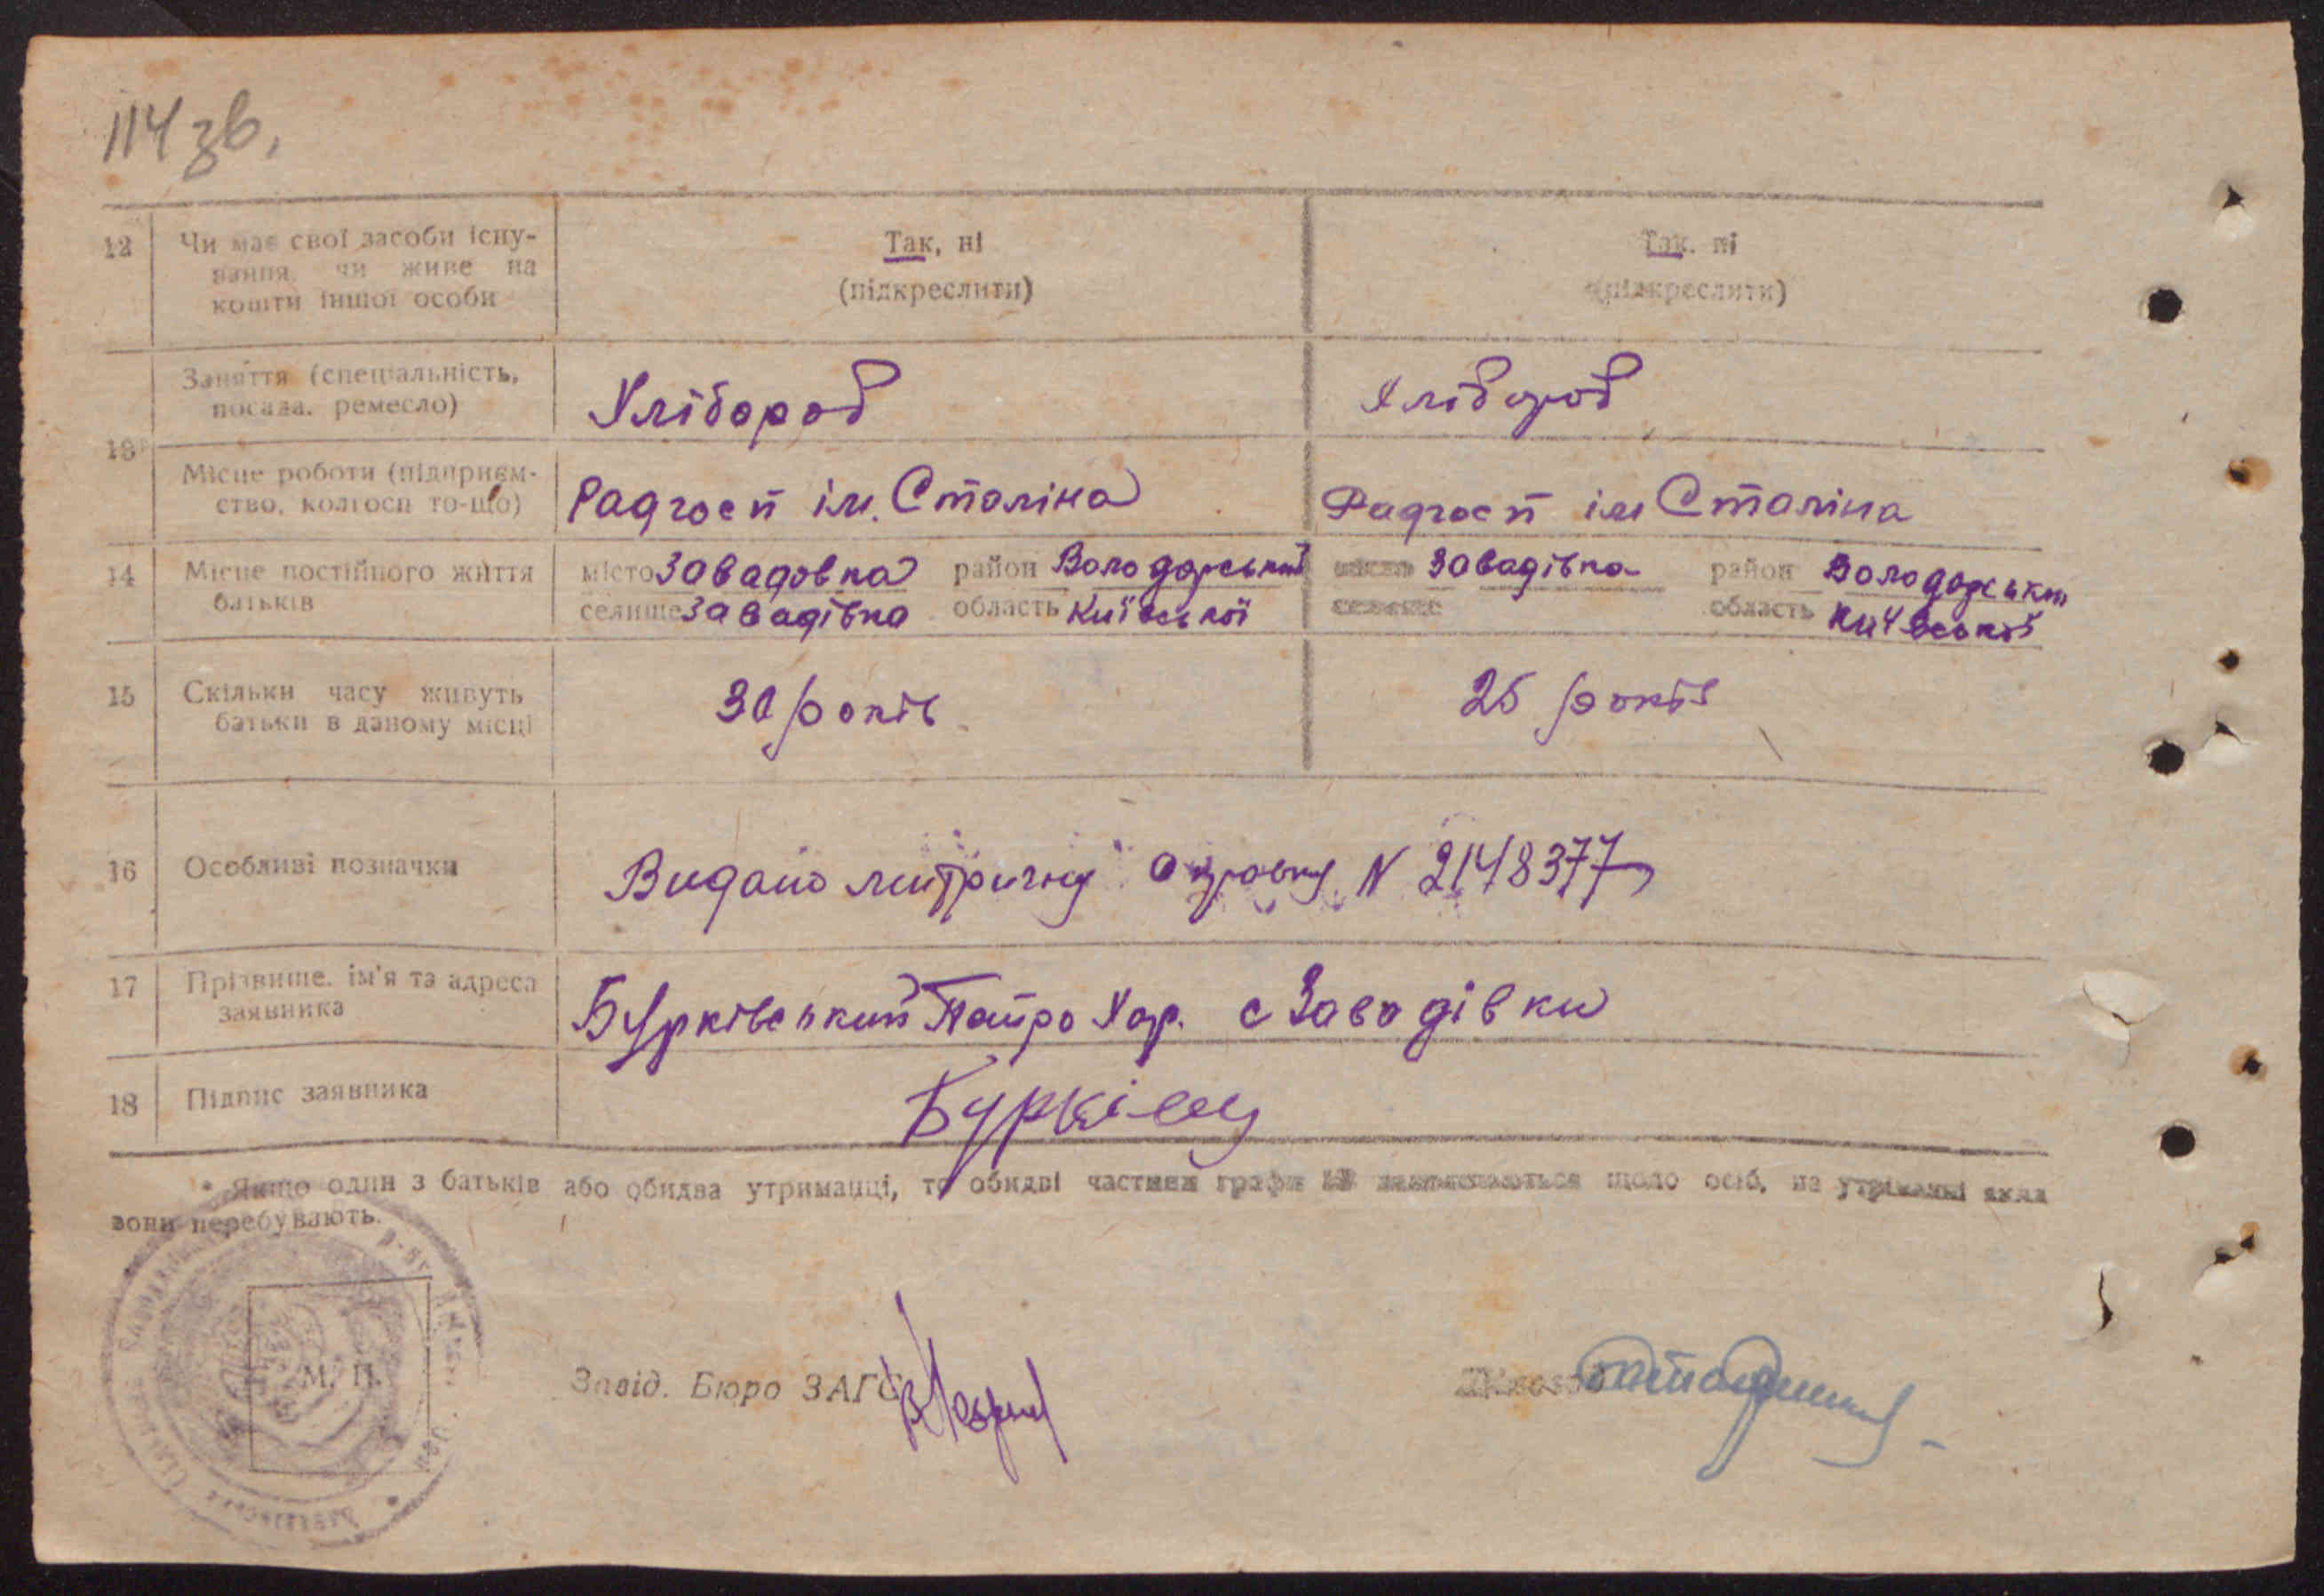 114 зв.
12 Чи має свої засоби існу- Так, ні Так, ні
вання, чи живе на (підкреслити) (підкреслити)
кошти іншої особи
13 Заняття (спеціальність, Хлібороб Хлібороб
посада, ремесло)
Місце роботи (підприєм- Радгосп ім. Сталіна Радгосп ім Сталіна
ство, колгосп то-що)
14 Місце постійного життя місто Завадовка район Володарський місто Завадівка район Володарський
батьків селище Завадівка область Київської селище область Київської
15 Скільки часу живуть 30 років 25 років
батьки в даному місці
16 Особливі позначки Видано метричну N 2148377
17 Прізвище, ім'я та адреса Бурківський Петро Хар. с Завадівки
заявника
18 Підпис заявника
* Якщо один з батьків або обидва утриманці, то обидві частини графи заповнюються щодо осіб, на утриманні яких
вони перебувають.
М. П.
Завід. Бюро ЗАГС